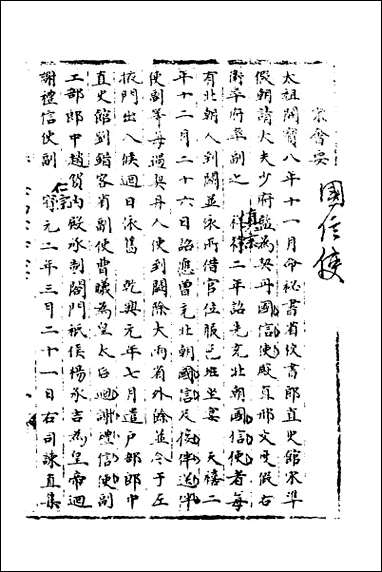 宋會要
國信使
太祖開寶八年十一月命秘書省校書郎直史館宋準
假朝請大夫少府監為契丹國信使殿直邢文度假右
衛率府率副之 真宗祥符二年詔先充北朝國信使者每
有北朝人到闕並永所借官位服色班坐宴 天禧二
年十二月二十六日詔應曾充北朝國信及接伴送伴
使副等每遇契丹人使到闕除大兩省外餘並令于左
掖門出入候迴日依舊 乾興元年七月遣戶部郎中
直史館劉鍇客省副使曹曦為皇太后迴謝禮信使副
工部郎中趙賀內殿承制閤門祗候楊承吉為皇帝迴
謝禮信使副 仁宗寶元二年三月二十一日右司諫直集